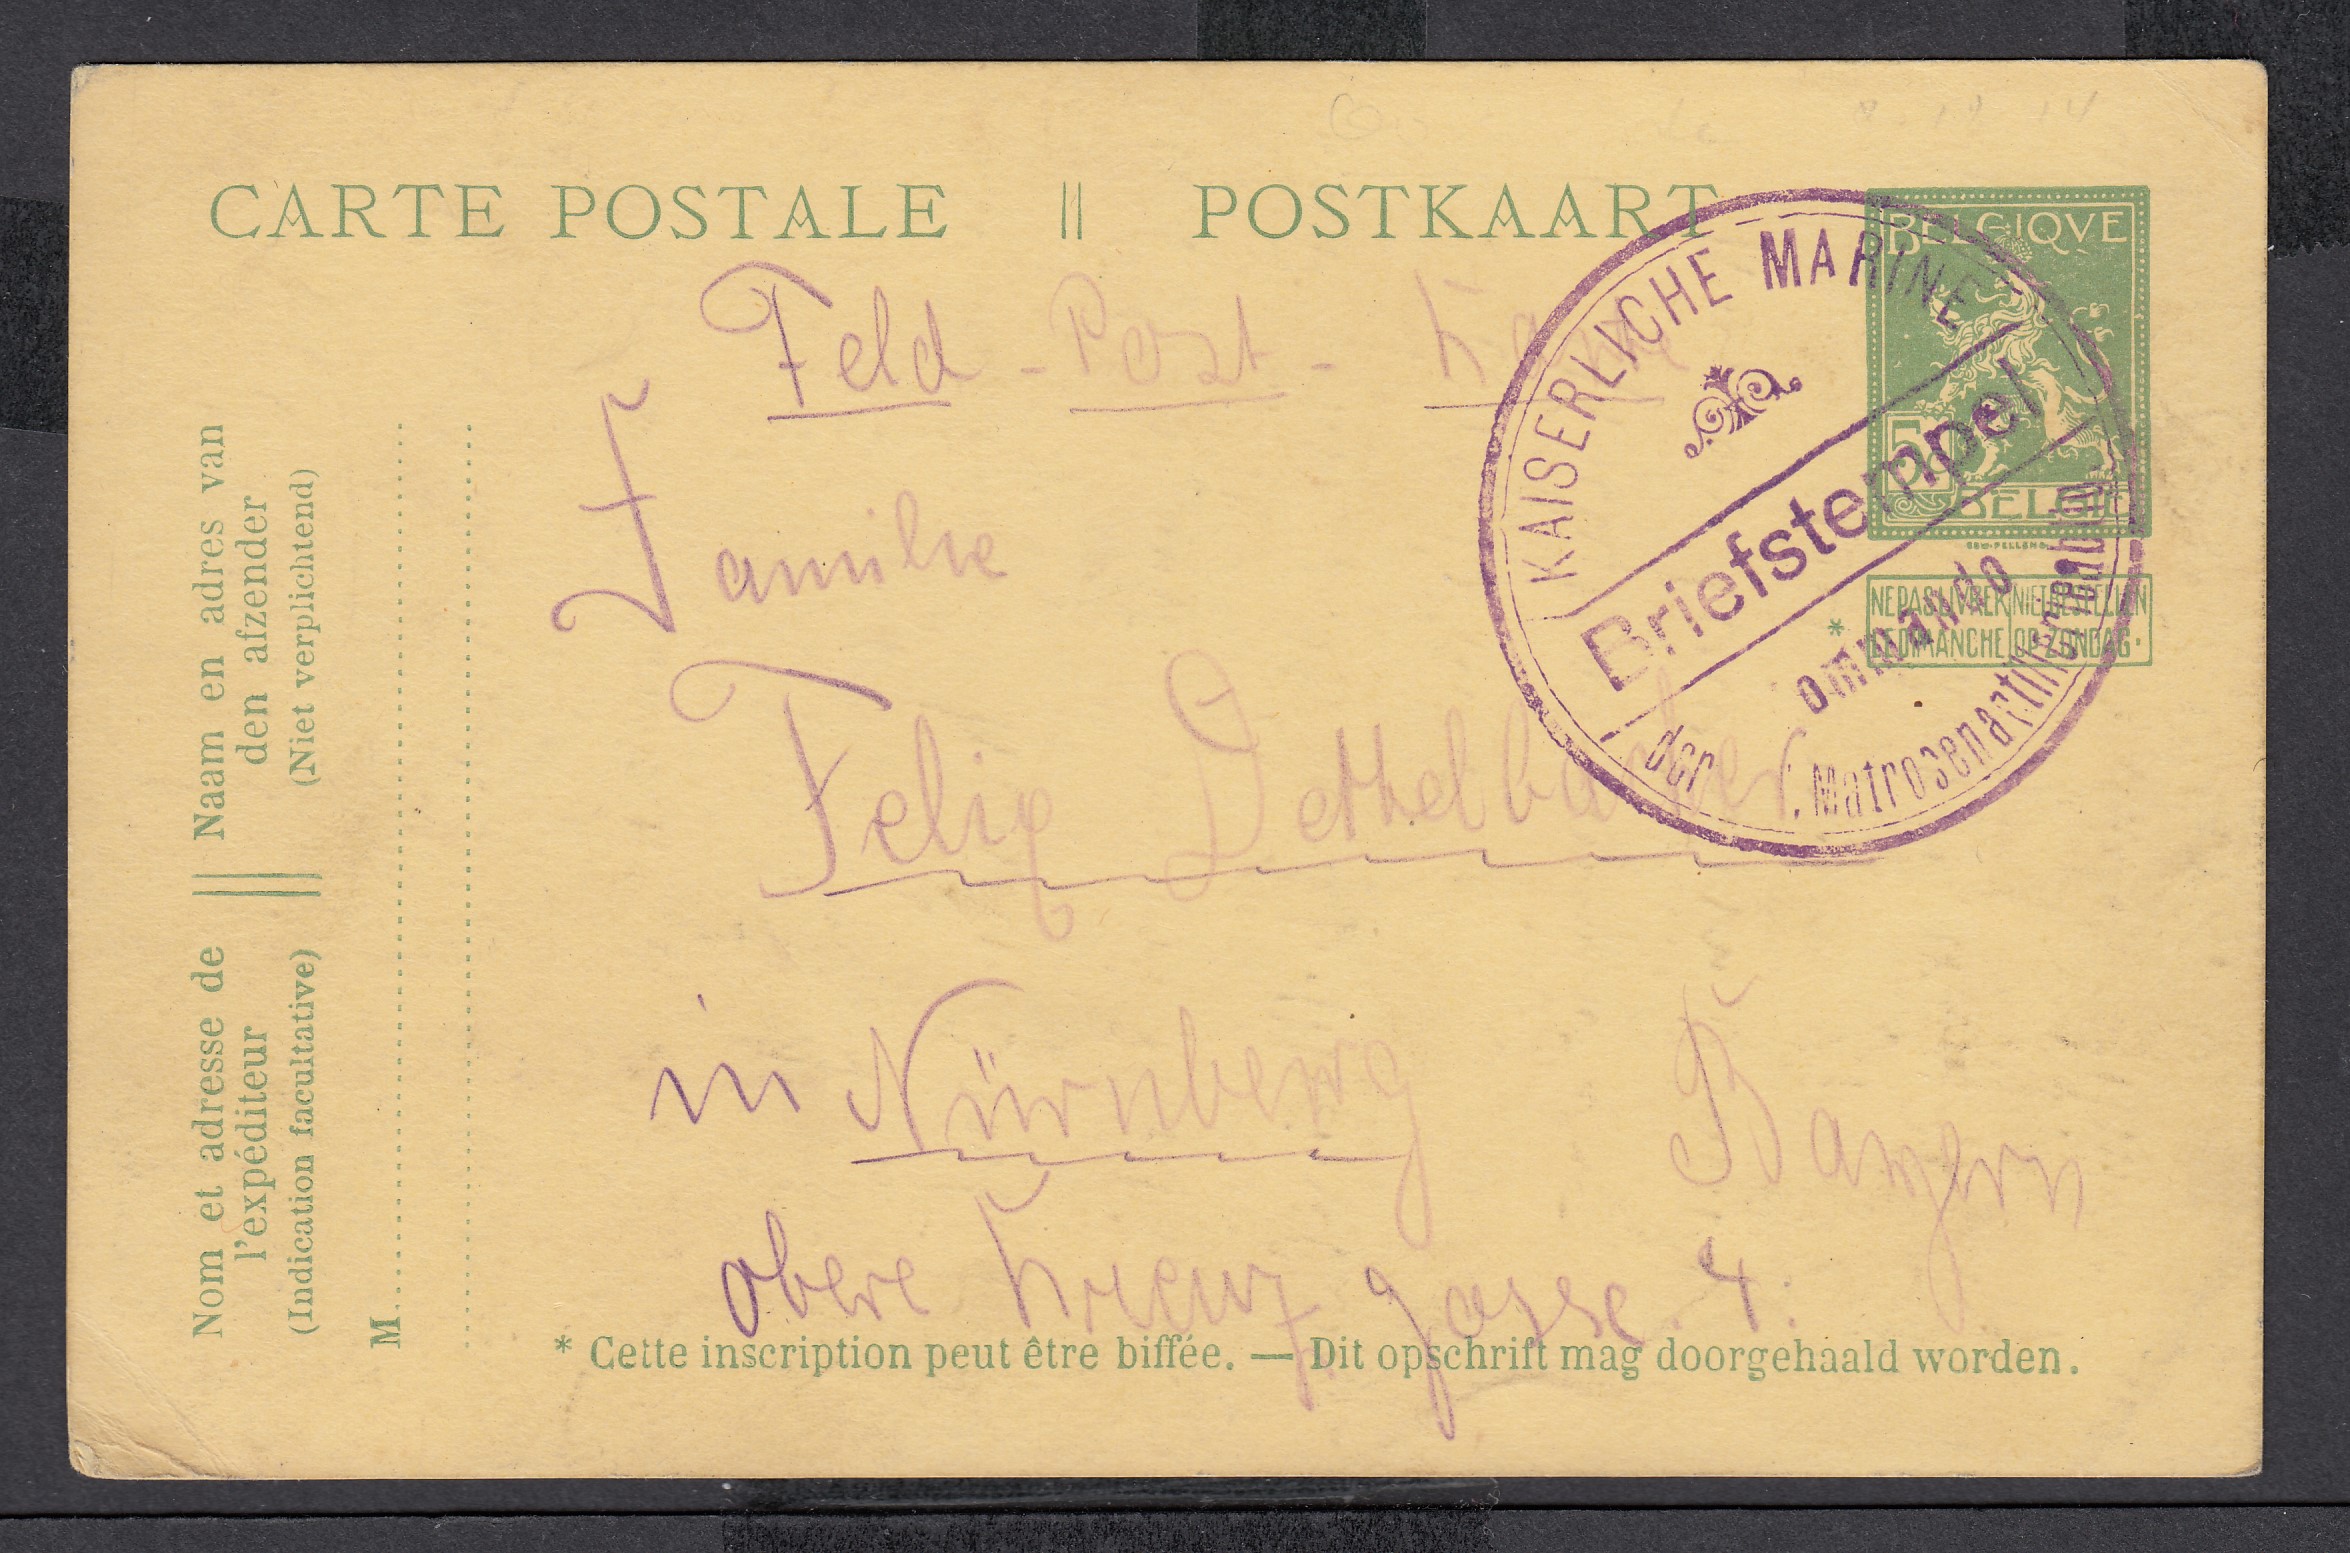 CARTE POSTALE || POSTKAART
BELGIQVE
5
BELGIË
NE PAS LIVRER LE DIMANCHE
NIET BESTELLEN OP ZONDAG.
*
KAISERLICHE MARINE
Briefstempel
ommando
der Matrosenartillerieabteil
Feld - Post - Karte
Familie
Felix Dettelbacher
in Nürnberg
Bayern
obere Kreuz gasse. 4.
Naam en adres van
den afzender
(Niet verplichtend)
Nom et adresse de
l'expéditeur
(Indication facultative)
M
* Cette inscription peut être biffée. — Dit opschrift mag doorgehaald worden.